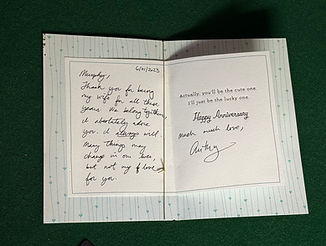 6/21/2023
Murphy,
Thank you for being
my wife for all these
years. We belong together,
I absolutely adore
you. I always will.
Many things may
change in our lives
but not my love
for you.
Actually, you'll be the cute one.
I'll just be the lucky one.
Happy Anniversary
much much love,